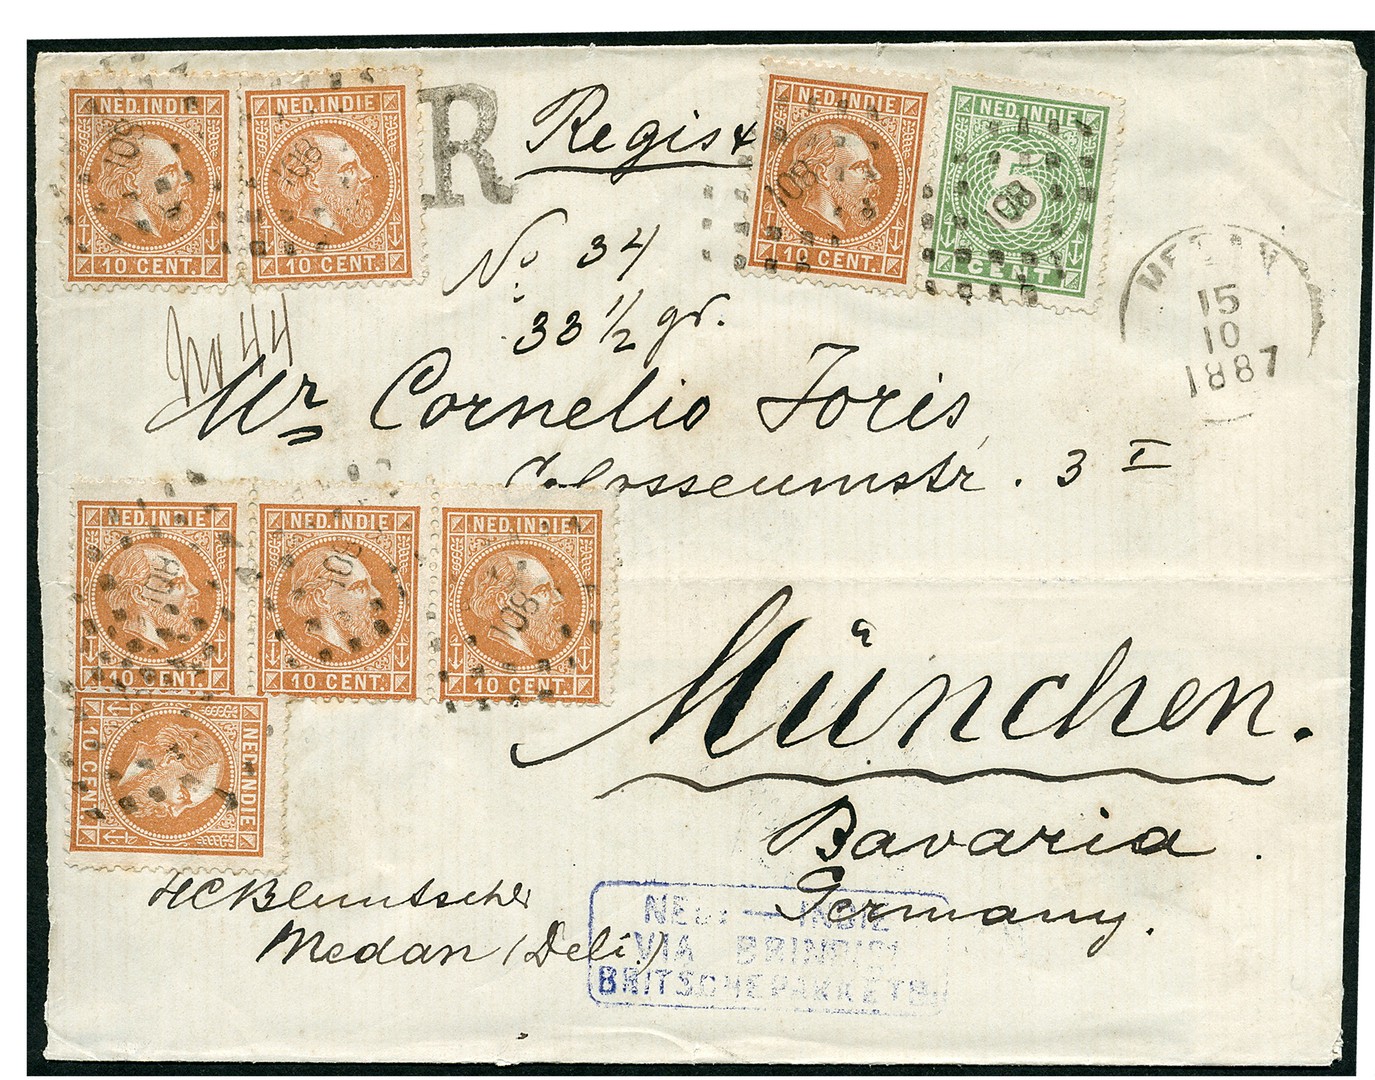 NED. INDIE NED. INDIE R Regist NED. INDIE NED. INDIE
108 108 108 5 108
10 CENT. 10 CENT. 10 CENT. CENT
No. 34
33 1/2 gr.
No 44
15
10
1887
Mr Cornelio Joris,
Colosseumstr. 3 I
NED. INDIE NED. INDIE NED. INDIE
108 108 108
10 CENT. 10 CENT. 10 CENT.
10 CENT. NED. INDIE
München.
Bavaria.
Germany.
HCBluntschli
Medan (Deli)
NED. — INDIE
VIA BRINDISI
BRITSCHE PAKKETB